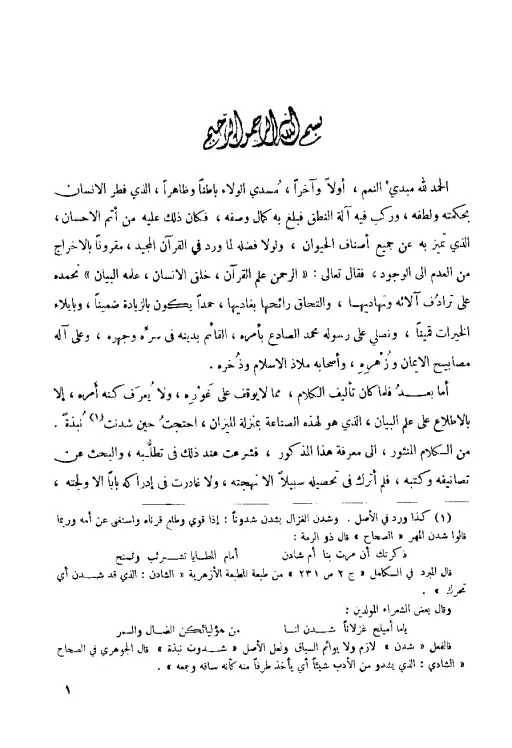 بسم الله الرحمن الرحيم
الحمد لله مبدي' النعم ، أولاً وآخراً ، مُسدي الولاء باطناً وظاهراً ، الذي فطر الانسان
بحكمته ولطفه ، وركب فيه آلة النطق فبلغ به كمال وصفه ، فكان ذلك عليه من أتم الاحسان ،
الذي تميز به عن جميع أصناف الحيوان ، ولولا فضله لما ورد في القرآن المجيد ، مقروناً بالاخراج
من العدم الى الوجود ، فقال تعالى : « الرحمن علم القرآن ، خلق الانسان ، علمه البيان » نحمده
على ترادُف آلائه وتهاديهـا ، والتحاق رائحها بغاديها ، حمداً يكون بالزيادة ضميناً ، وبايلاء
الخيرات قميناً ، ونصلي على رسوله محمد الصادع بأمره ، القائم بدينه في سرّه وجهره ، وعلى آله
مصابيح الايمان وزُهره ، وأصحابه ملاذ الاسلام وذُخره .
أما بعـــدُ فلما كان تأليف الكلام ، مما لايوقف على غَوْره ، ولا يُعرَف كنه أمره ، إلا
بالاطلاع على علم البيان ، الذي هو لهذه الصناعة بمنزلة الميزان ، احتجتُ حين شدنت (١) نُبذةً .
من الكلام المنثور ، الى معرفة هذا المذكور ، فشرعت عند ذلك في تطلّبه ، والبحث عن
تصانيفه وكتبه ، فلم أترك في تحصيله سبيلاً الا نهجته ، ولا غادرت في إدراكه باباً الا ولجته ،
(١) كذا ورد في الأصل . وشدن الغزال يشدن شدوناً : إذا قوي وطلع قرناه واستغنى عن أمه وربما
قالوا شدن المهر « الصحاح » قال ذو الرمة :
ذكرتك أن مرت بنا أم شادن أمام المطايا تشـرئب وتسنح
قال المبرد في الكامل « ج ٢ ص ٢٣١ » من طبعة المطبعة الأزهرية « الشادن : الذي قد شـدن أي
تحرك » .
وقال بعض الشعراء المولدين :
ياما أميلح غزلاناً شـدن لنـا من هؤليائكن الضـال والسمر
فالفعل « شدن » لازم ولا يوائم السياق ولعل الأصل « شـدوت نبذة » قال الجوهري في الصحاح
« الشادي : الذي يشدو من الأدب شيئاً أي يأخذ طرفاً منه كأنه ساقه وجمعه » .
١